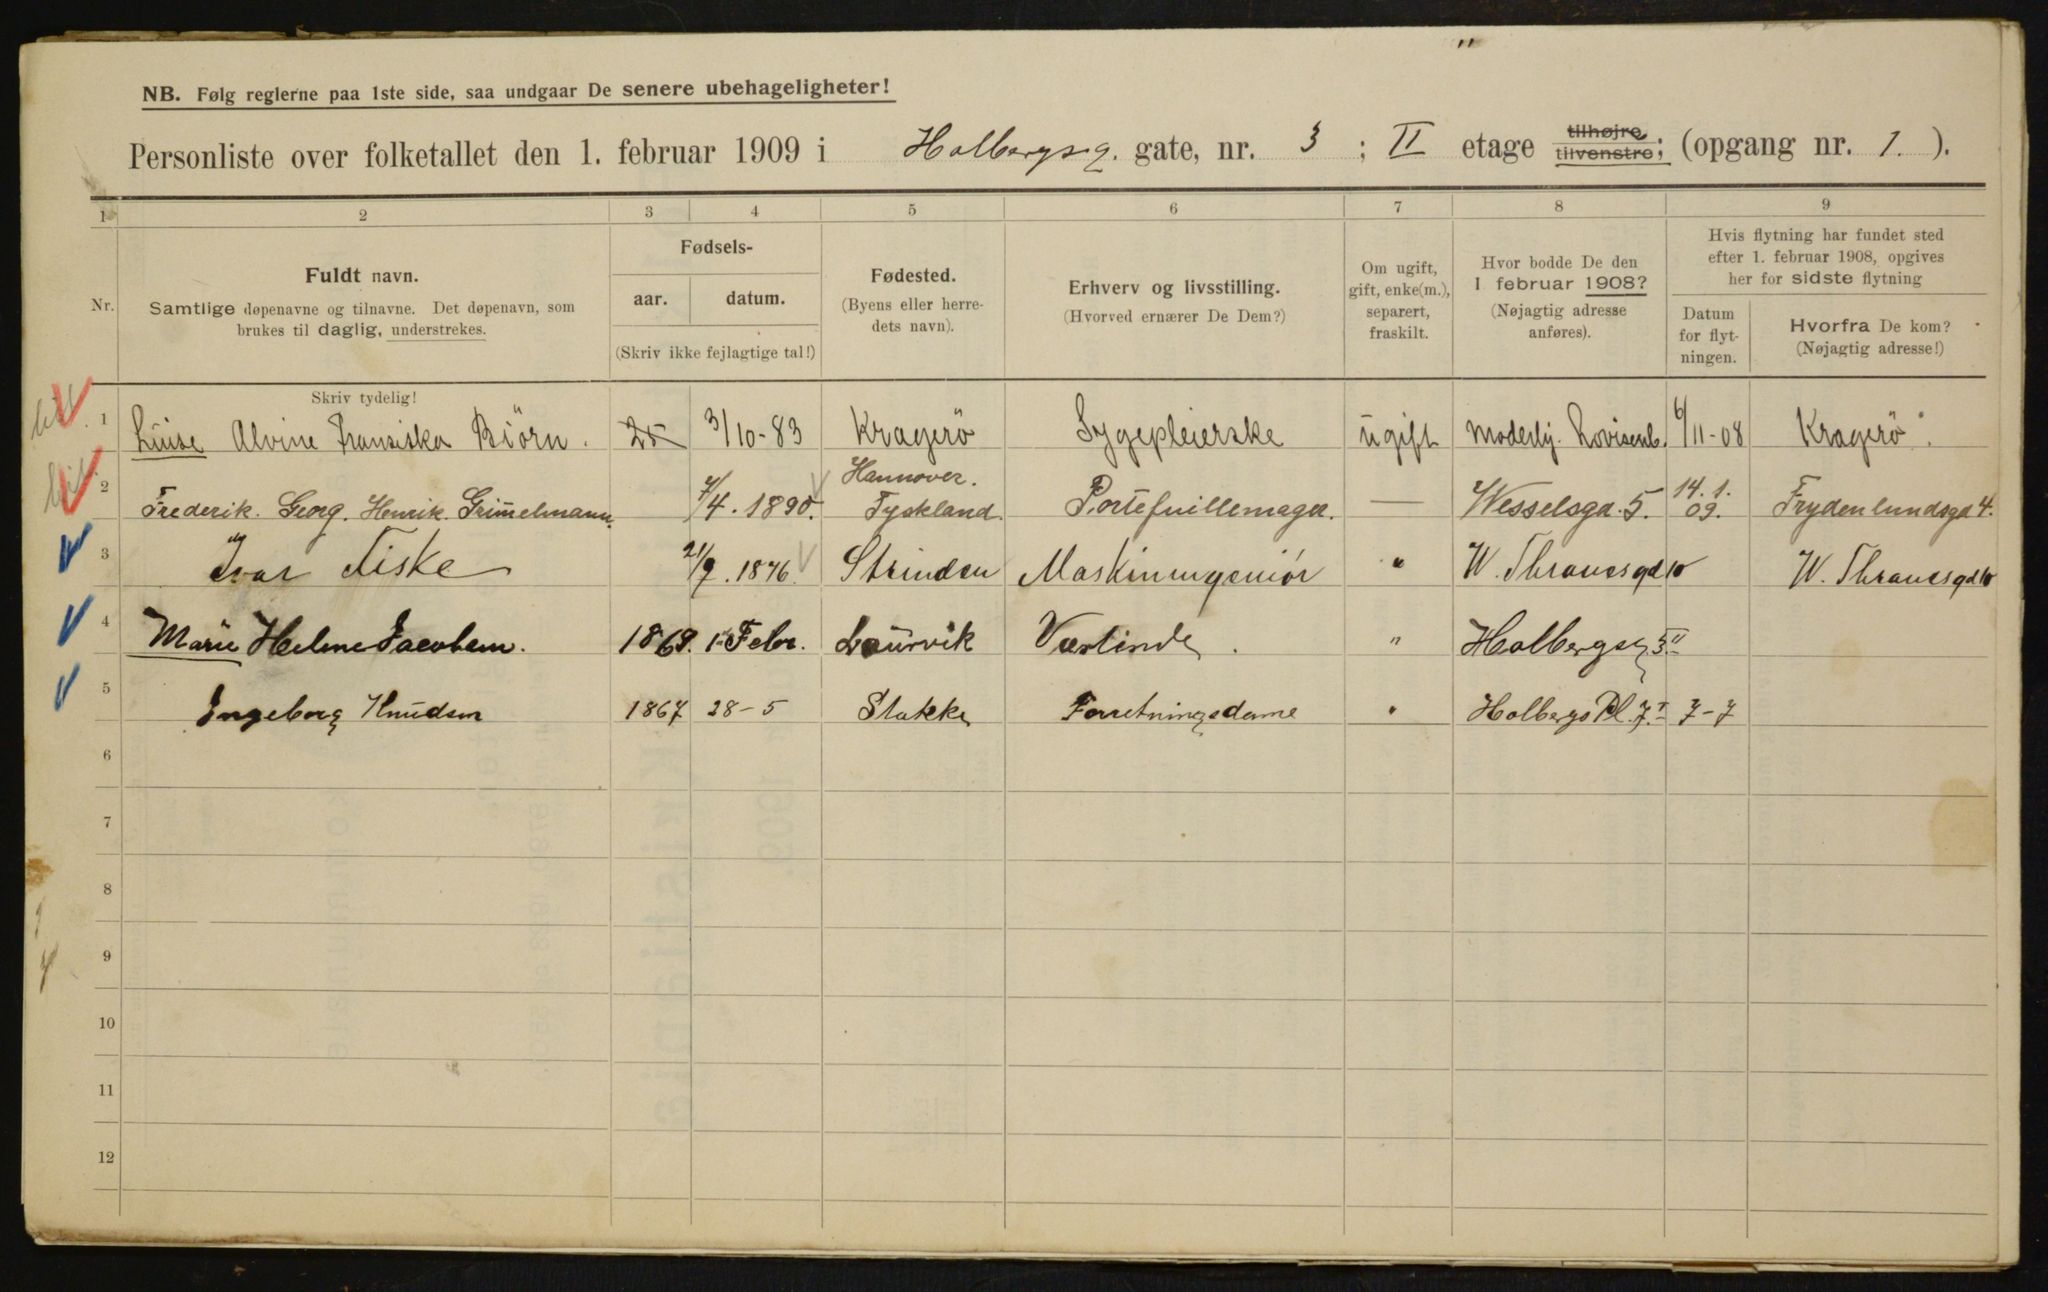 NB. Følg reglerne paa 1ste side, saa undgaar De senere ubehageligheter!
Personliste over folketallet den 1. februar 1909 i Holbergsg. gate, nr. 3 ; II etage tilhøjre tilvenstre; (opgang nr. 1. ).
1 2 3 4 5 6 7 8 9
Nr.
Fuldt navn.
Samtlige døpenavne og tilnavne. Det døpenavn, som
brukes til daglig, understrekes.
Fødsels-
aar. datum.
(Skriv ikke fejlagtige tal!)
Fødested.
(Byens eller herre-
dets navn).
Erhverv og livsstilling.
(Hvorved ernærer De Dem?)
Om ugift,
gift, enke(m.),
separert,
fraskilt.
Hvor bodde De den
1 februar 1908?
(Nøjagtig adresse
anføres).
Hvis flytning har fundet sted
efter 1. februar 1908, opgives
her for sidste flytning
Datum
for flyt-
ningen.
Hvorfra De kom?
(Nøjagtig adresse!)
Skriv tydelig!
1 Luise Alvine Fransiska Biörn. 25 3/10-83 Kragerö Sygepleierske ugift Moderhj. Lovisenb. 6/11-08 Kragerö.
2 Frederik. Georg. Henrik. Grimmelmann. 7/4. 1890. Hannover. Tyskland. Portefuillemager. — Wesselsgd. 5. 14. 1. 09. Frydenlundsgd 4.
3 Ivar Fiske 21/9. 1876. Strinden Maskiningeniör " W. Thranesgd 10 W. Thranesgd 10
4 Marie Helene Jacobsen. 1868. 1 Febr. Laurvik Værtinde. " Holbergsg 3 II
5 Ingeborg Knudsen 1867 28-5 Slakke Forretningsdame " Holbergs Pl. 7. I 7-7
6
7
8
9
10
11
12